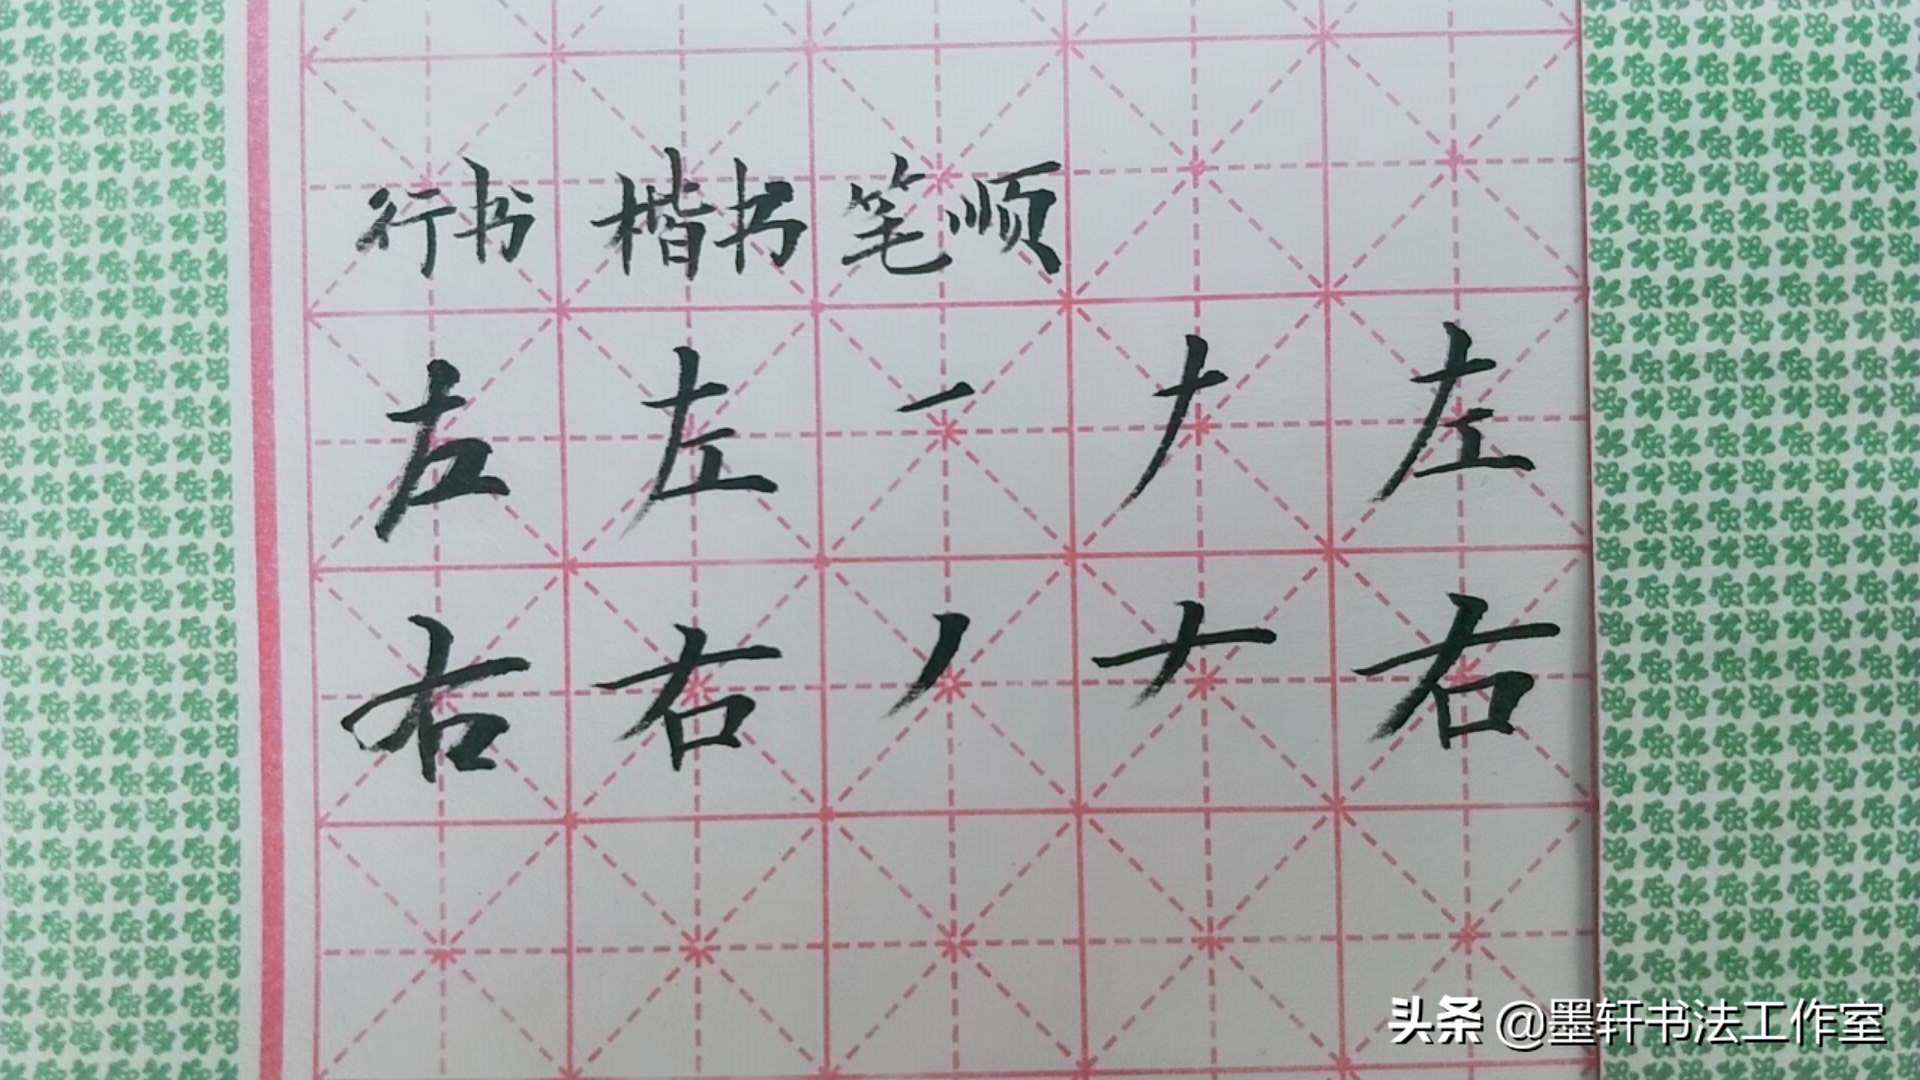 行书 楷书 笔顺
左 左 一 𠂇 左
右 右 丿 𠂇 右
头条 @墨轩书法工作室